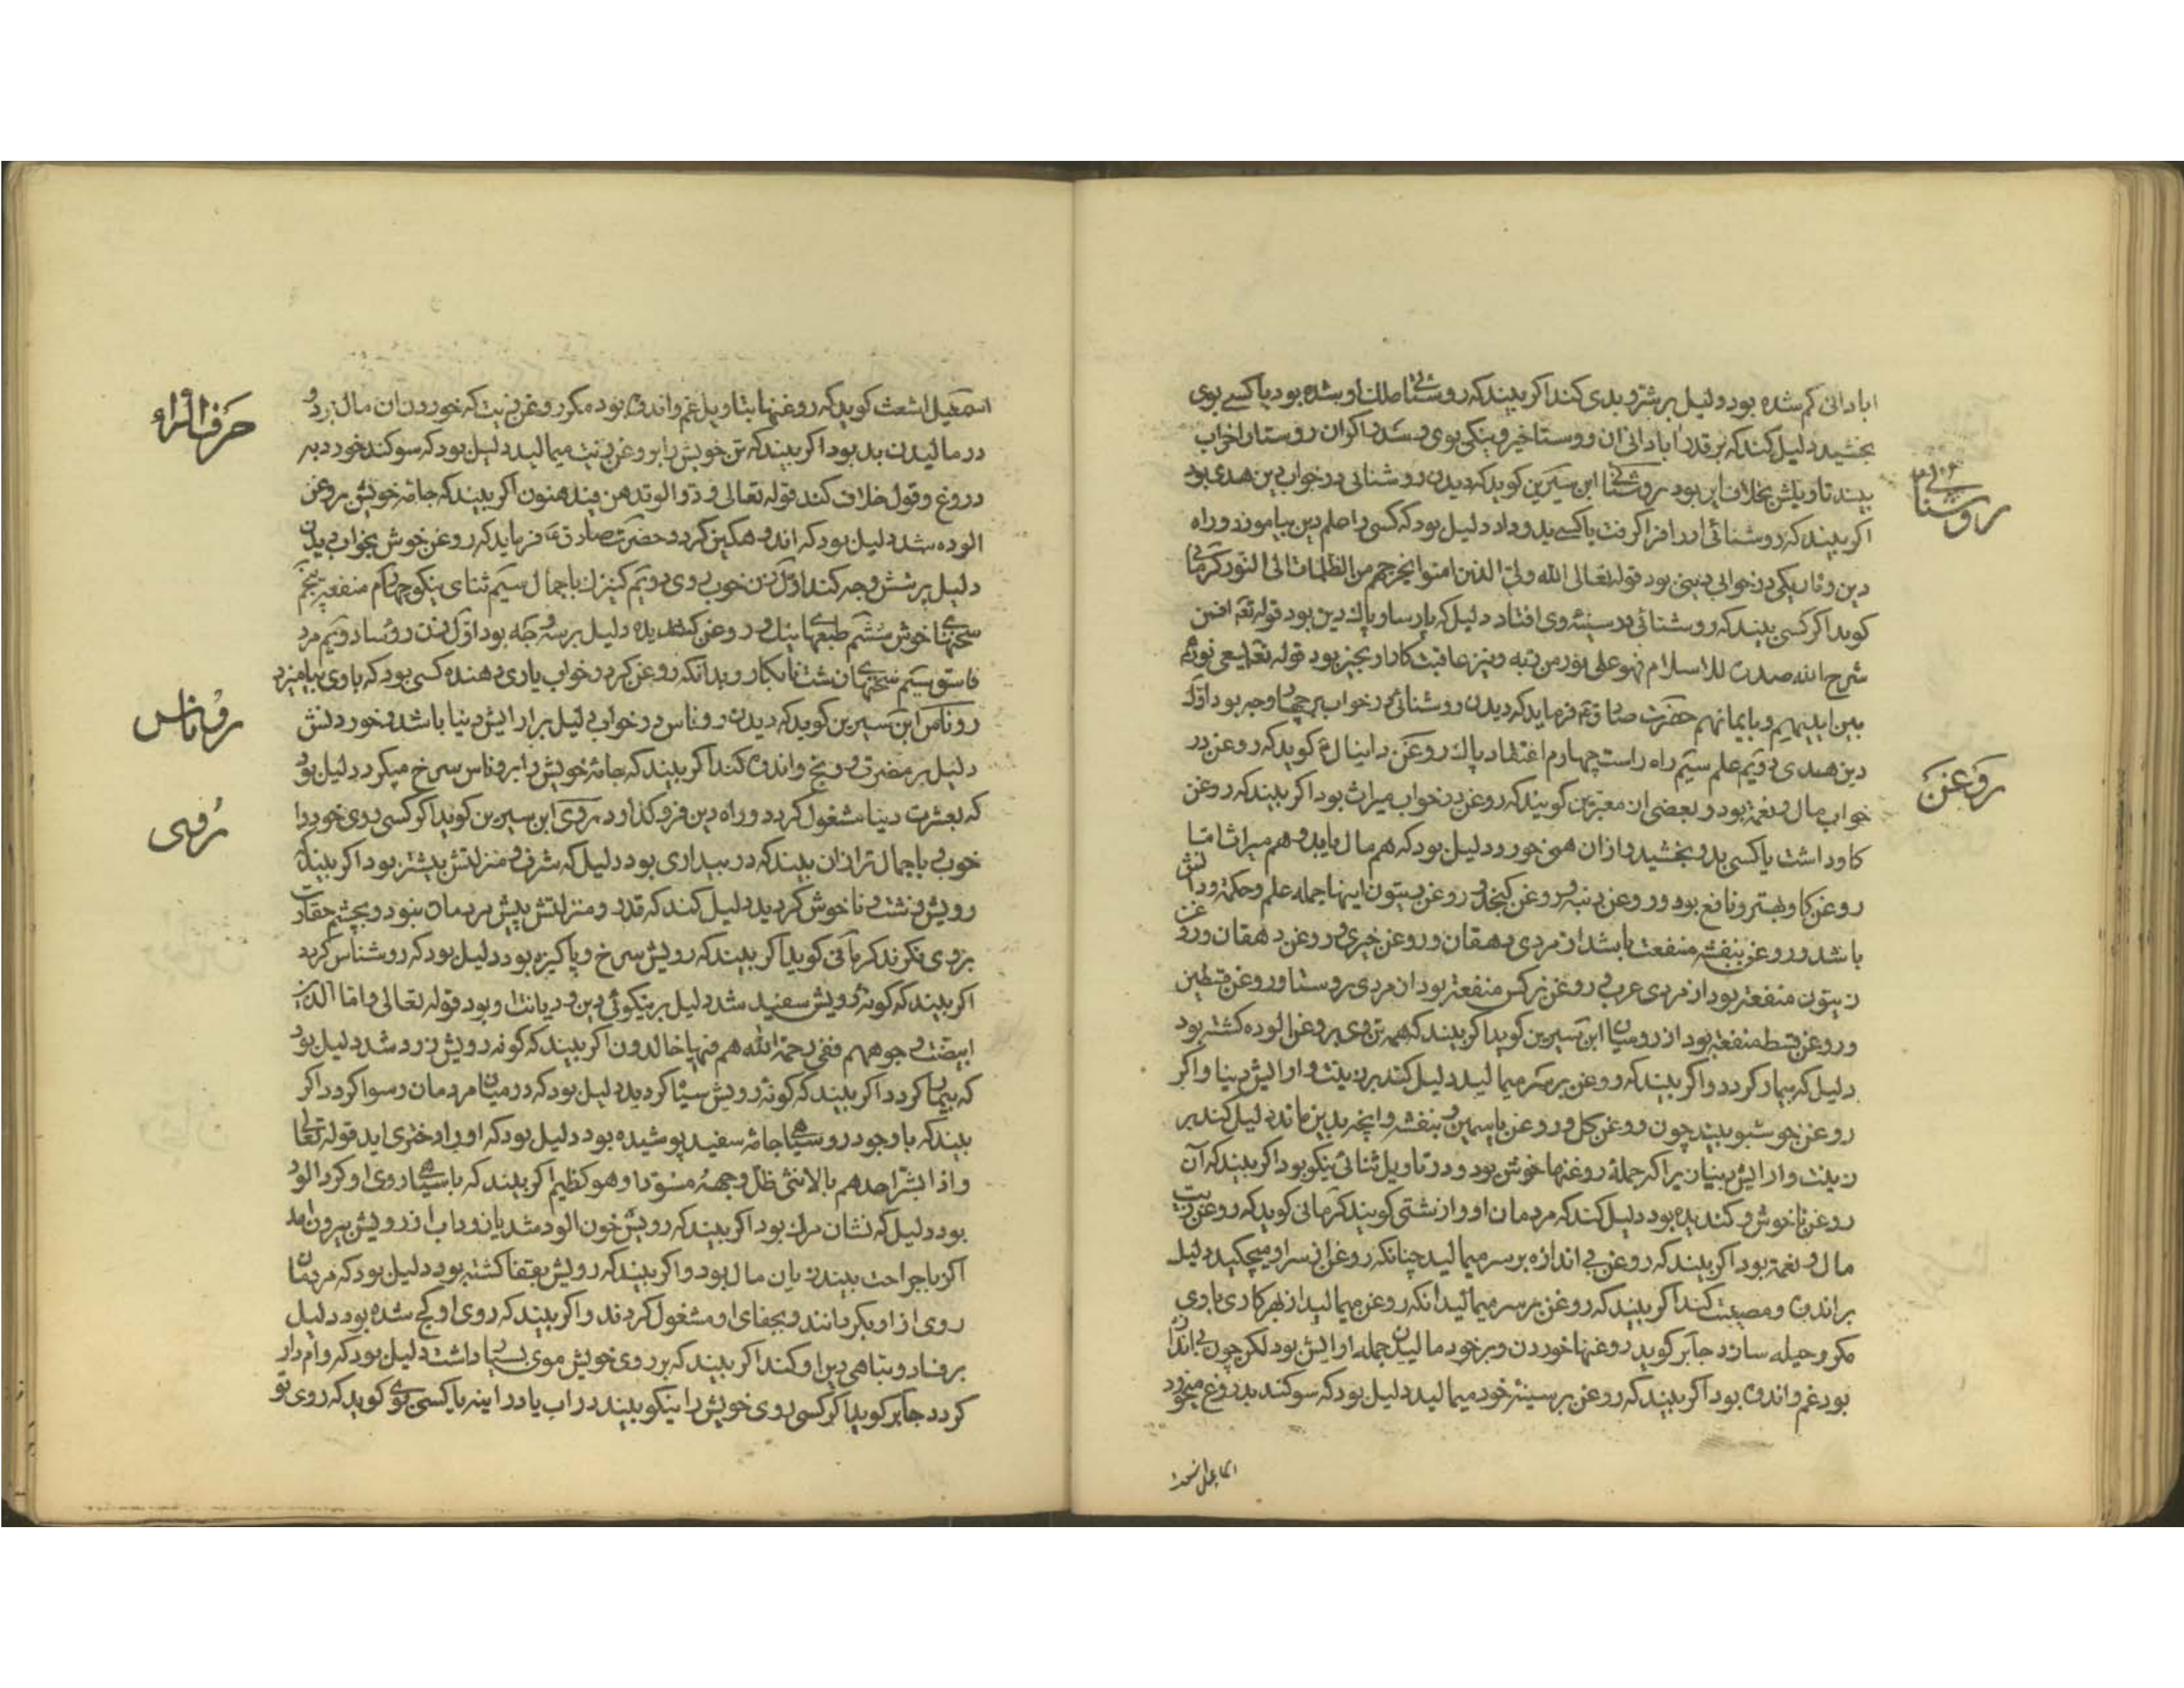 ابادانی کم شده بود دلیل بر شر و بدی کند اکر بیند که روستائی ملک او شده بود یا کسی بوی
بخشید دلیل کند که بر قدر ابادانی آن روستا خیر و نیکی بوی رسد اکر آن روستا را خراب
بیند تاویلش بخلاف این بود روشنائی ابن سیرین کوید که دیدن روشنائی در خواب دین هدی بود
روشنائی
اکر بیند که روشنائی را فرا کرفت یا کسی بدو داد دلیل بود که کسی را علم دین بیاموزد و راه
دین و تاریکی در خواب بی دینی بود قوله تعالی الله ولی الذین امنوا یخرجهم من الظلمات الی النور کرمانی
کوید اکر کسی بیند که روشنائی در سینه وی افتاد دلیل که پارسا و پاک دین بود قوله تع افمن
شرح الله صدره للاسلام فهو علی نور من ربه و نیز عاقبت کار او بخیر بود قوله تعالی یسعی نورهم
بین ایدیهم و بایمانهم حضرت صادق ع فرماید که دیدن روشنائی در خواب بر چهار وجه بود اول
دین هدی دویم علم سیم راه راست چهارم اعتقاد پاک روغن دانیال ع کوید که روغن در
روغن
خواب مال و نعمة بود و بعضی از معبرین کویند که روغن در خواب میراث بود اکر بیند که روغن
کاو داشت یا کسی بدو بخشید و از آن همی خورد دلیل بود که هم مال یابد و هم میراث اما
روغن کاو بهتر و نافع بود و روغن دنبه و روغن کنجد و روغن زیتون اینها جمله علم و حکمة و دانش
باشد و روغن بنفشه منفعت باشد از مردی دهقان و روغن خیری و روغن دهقان و روغن
زیتون منفعة بود از مردی عرب و روغن نرکس منفعة بود از مردی روستا و روغن
و روغن قسط منفعة بود از رومیان ابن سیرین کوید اکر بیند که همه تن وی بروغن الوده کشته بود
دلیل که بیمار کردد و اکر بیند که روغن بر سر میمالید دلیل کند بر زینت و ارایش دنیا و اکر
روغن خوشبو بیند چون روغن کل و روغن یاسمین و بنفشه و انچه بدین ماند دلیل کند بر
زینت و ارایش دنیا زیرا که جمله روغنها خوش بود و در تاویل ثنائی نیکو بود اکر بیند که آن
روغن ناخوش و کندیده بود دلیل کند که مردمان او را زشتی کویند کرمانی کوید که روغن زیت
مال و نعمة بود اکر بیند که روغن بی اندازه بر سر میمالید چنانکه روغن از سر او میچکید دلیل
بر اندوه و مصیبت کند اکر بیند که روغن بر سر میمالید انکه روغن میمالید از بهر کاری با وی
مکر و حیله سازد جابر کوید روغنها خوردن و بر خود مالیدن جمله ارایش بود لکن چون بی اندازه
بود غم و اندوه بود اکر بیند که روغن بر سینه خود میمالید دلیل بود که سوکند بدروغ میخورد
اسماعیل اشعث
اسمعیل اشعث کوید که روغنها بتاویل غم و اندوه بود مکر روغن زیت که خوردن ان مال بود و
حرف الراء
در مالیدن بد بود اکر بیند که تن خویش را بروغن زیت میمالید دلیل بود که سوکند خورد به
دروغ و قول خلاف کند قوله تعالی ودوا لو تدهن فیدهنون اکر بیند که جامه خویش بروغن
الوده شد دلیل بود که اندوهکین کردد حضرت صادق ع فرماید که روغن خوش بخواب دیدن
دلیل بر شش وجه کند اول زن خوب روی دویم کنیزک با جمال سیم ثنای نیکو چهارم منفعة پنجم
سخنهای خوش ششم طبعهای نیک و روغن کندیده دلیل بر سه وجه بود اول زن رسوا دویم مرد
فاسق سیم سخنهای زشت نابکار و بدانکه روغن کر در خواب یاری دهنده کسی بود که با وی بیامیزد
روناس ابن سیرین کوید که دیدن روناس در خواب دلیل بر ارایش دنیا باشد و خوردنش
روناس
دلیل بر مضرت و رنج و اندوه کند اکر بیند که جامه خویش را بروناس سرخ میکرد دلیل بود
که بعشرت دنیا مشغول کردد و راه دین فرو کذارد روی ابن سیرین کوید اکر کسی روی خود را
روی
خوب با جمال تر از ان بیند که در بیداری بود دلیل که شرف و منزلتش بیشتر بود اکر بیند که
رویش زشت و ناخوش کردید دلیل کند که قدر و منزلتش پیش مردمان نبود و بچشم حقارت
بروی نکرند کرمانی کوید اکر بیند که رویش سرخ و پاکیزه بود دلیل بود که روشناس کردد
اکر بیند که کونه رویش سفید شد دلیل بر نیکوئی دین و دیانت او بود قوله تعالی و اما الذین
ابیضت وجوههم ففی رحمة الله هم فیها خالدون اکر بیند که کونه رویش زرد شد دلیل بود
که بیمار کردد اکر بیند که کونه رویش سیاه کردید دلیل بود که در میان مردمان رسوا کردد اکر
بیند که با وجود رو سیاهی جامه سفید پوشیده بود دلیل بود که او را دختری اید قوله تعالی
و اذا بشر احدهم بالانثی ظل وجهه مسودا وهو کظیم اکر بیند که با سیاهی روی او کرد الود
بود دلیل که نشان مرک بود اکر بیند که رویش خون الود شد یا زرداب از رویش بیرون امد
اکر با جراحت بیند زیان مال بود و اکر بیند که رویش بقفا کشته بود دلیل بود که مردمان
روی از او بکردانند و بجفای او مشغول کردند و اکر بیند که روی او کج شده بود دلیل
بر فساد و تباهی دین او کند اکر بیند که بر روی خویش موی بسیار داشت دلیل بود که وام دار
کردد جابر کوید اکر کسی روی خویش را نیکو بیند در اب یا در اینه یا کسی بوی کوید که روی تو